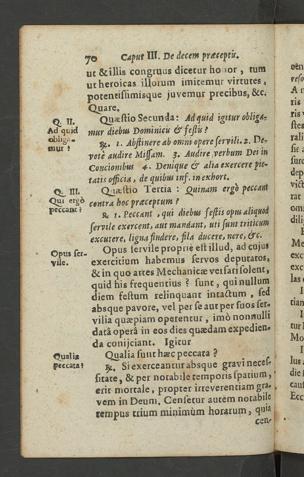 70 Caput III. De decem præceptis.
ut & illis congruus dicetur honor, tum
ut heroicas illorum imitemur virtutes,
potentissimisque juvemur precibus, &c.
Quare,
Q. II.
Ad quid
obliga-
mur?
Quæstio Secunda: Ad quid igitur obliga-
mur diebus Dominicis & festis?
℞. 1. Abstinere ab omni opere servili. 2. De-
votè audire Missam. 3. Audire verbum Dei in
Concionibus 4. Denique & alia exercere pie-
tatis officia, de quibus inf. in exhort.
Q. III.
Qui ergò
peccant?
Quæstio Tertia: Quinam ergò peccant
contra hoc præceptum?
℞. 1. Peccant, qui diebus festis opus aliquod
servile exercent, aut mandant, uti sunt triticum
excutere, ligna findere, fila ducere, nere, &c.
Opus ser-
vile.
Opus servile propriè est illud, ad cujus
exercitium habemus servos deputatos,
& in quo artes Mechanicæ versari solent,
quid his frequentius? sunt, qui nullum
diem festum relinquant intactum, sed
absque pavore, vel per se aut per suos ser-
vilia quæpiam operentur, imò nonnulli
datâ operâ in eos dies quædam expedien-
da conijciant. Igitur
Qualia
peccata?
Qualia sunt hæc peccata?
℞. Si exerceantur absque gravi neces-
sitate, & per notabile temporis spatium,
erit mortale, propter irreverentiam gra-
vem in Deum. Censetur autem notabile
tempus trium minimùm horarum, quia
cen-